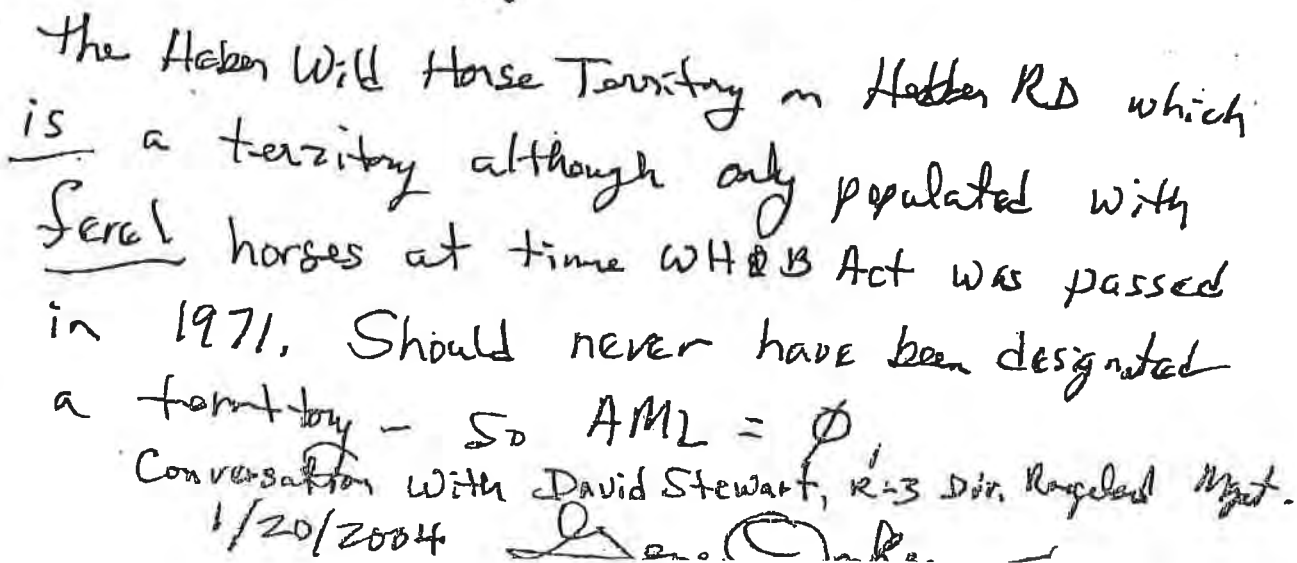 the Heber Wild Horse Territory on Heber RD which
is a territory although only populated with
feral horses at time WH&B Act was passed
in 1971. Should never have been designated
a territory - So AML = Ø
Conversation with David Stewart, R-3 Dir. Rangeland Mgmt.
1/20/2004